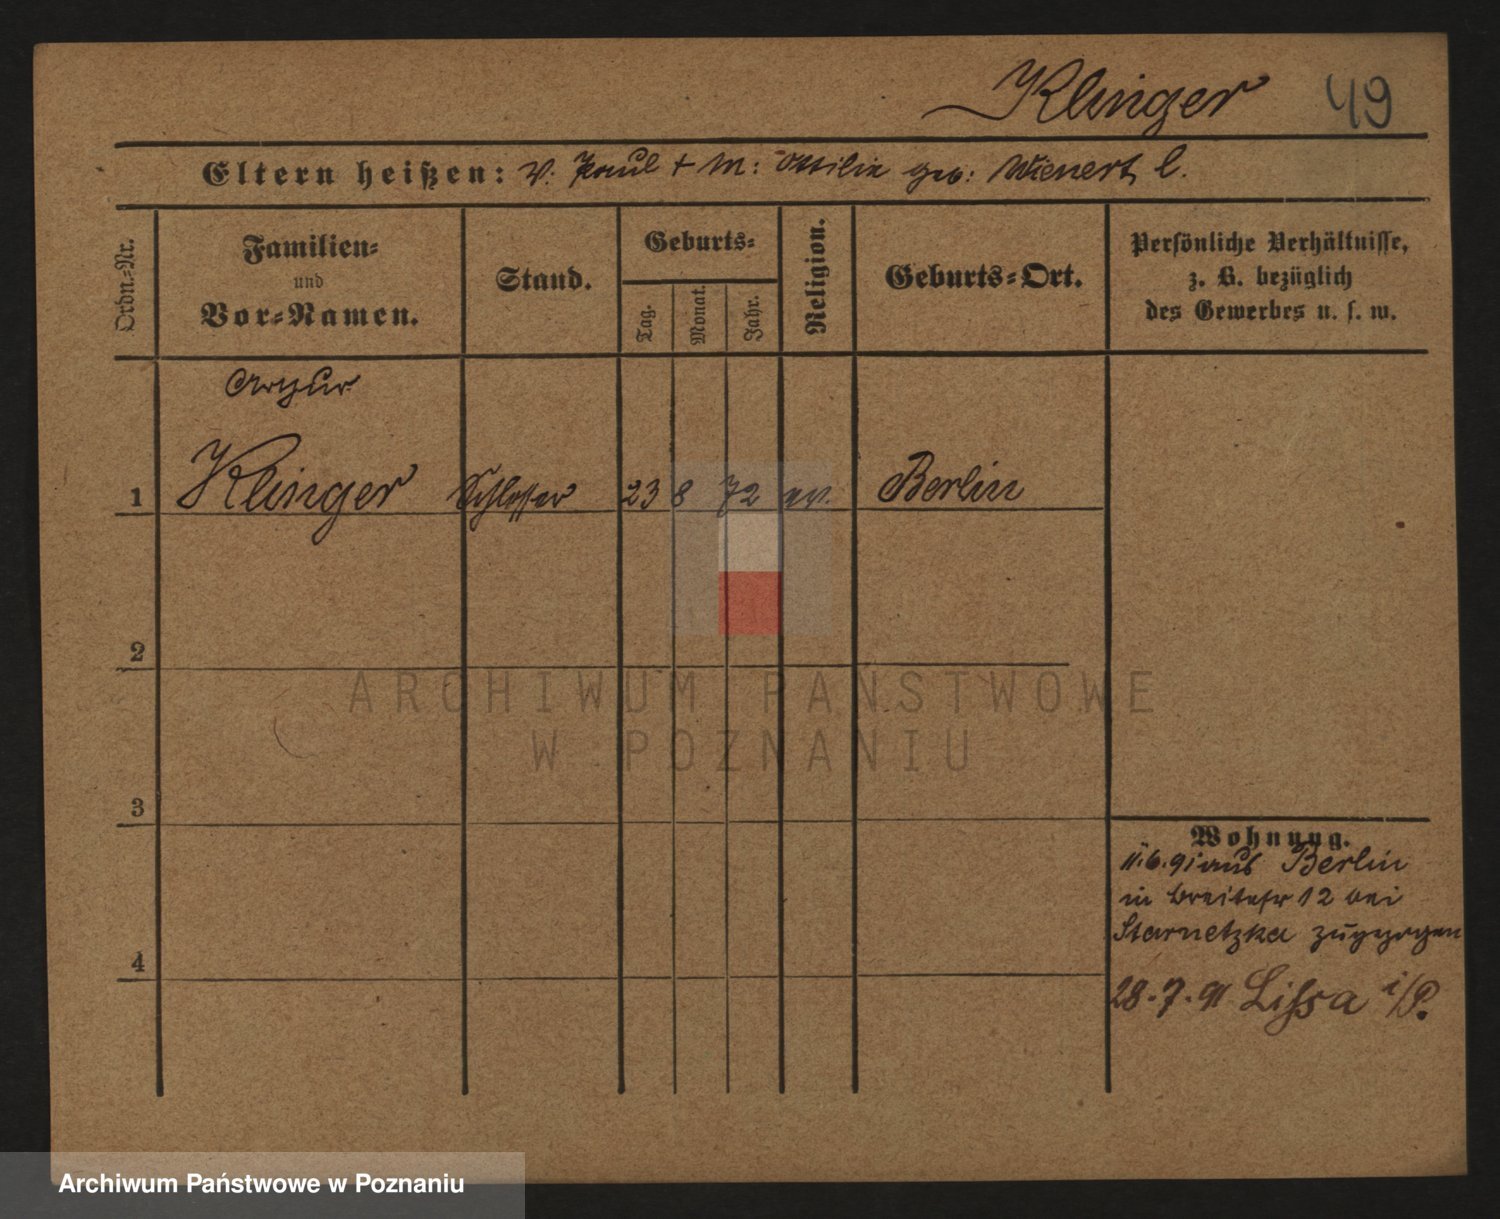 Klinger 49
Eltern heißen: V: Paul + M: Ottilie geb: Wienert l.
Ordn.-Nr.
Familien-
und
Vor-Namen.
Stand.
Geburts-
Tag. Monat. Jahr.
Religion.
Geburts-Ort.
Persönliche Verhältnisse,
z. B. bezüglich
des Gewerbes u. s. w.
Arthur
1 Klinger Schlosser 23 8 72 ev. Berlin
2
3
4
Wohnung.
11.6.91 aus Berlin
in Breitestr 12 bei
Starnetzka zugezogen
28.7.91 Lissa i/P.
ARCHIWUM PAŃSTWOWE
W POZNANIU
Archiwum Państwowe w Poznaniu